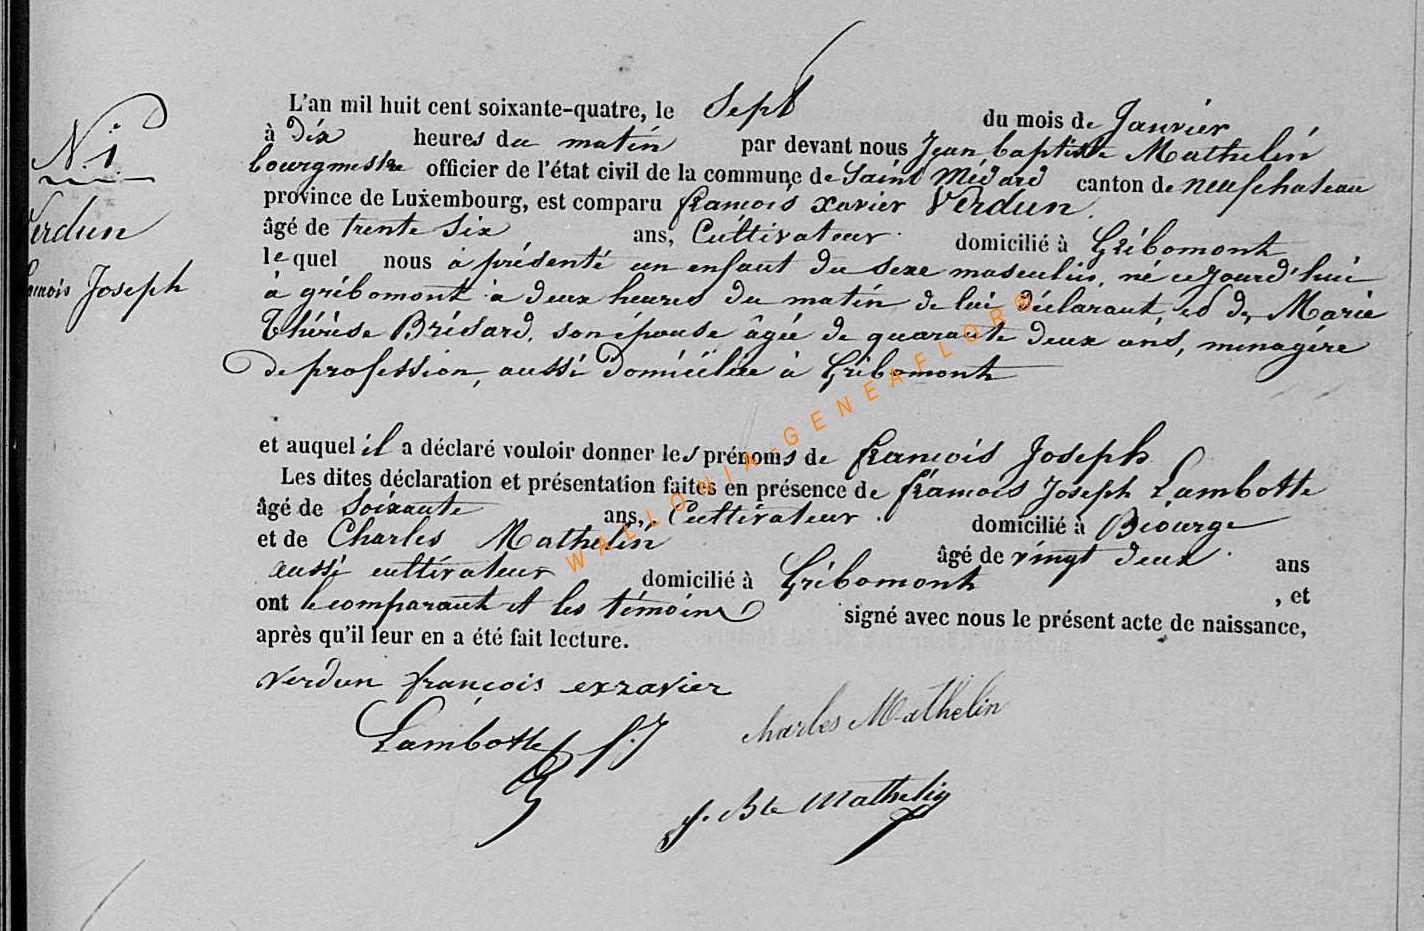 N 1
Verdun
françois Joseph
L'an mil huit cent soixante-quatre, le Sept du mois de Janvier
à dix heures du matin par devant nous Jean baptiste Mathelin
bourgmestre officier de l'état civil de la commune de Saint Médard canton de neufchateau
province de Luxembourg, est comparu françois xavier Verdun.
âgé de trente six ans, Cultivateur domicilié à Gribomont
lequel nous a présenté un enfant du sexe masculin, né cejourd'hui
à gribomont à deux heures du matin de lui déclarant, et de Marie
thérèse Bridard, son épouse âgée de quarante deux ans, ménagère
de profession, aussi domiciliée à Gribomont
et auquel il a déclaré vouloir donner les prénoms de françois Joseph
Les dites déclaration et présentation faites en présence de françois Joseph Lambotte
âgé de soixante ans, Cultivateur domicilié à Biourge
et de Charles Mathelin âgé de vingt deux ans
aussi cultivateur domicilié à Gribomont , et
ont le comparant et les témoins signé avec nous le présent acte de naissance,
après qu'il leur en a été fait lecture.
Verdun françois exzavier
Lambotte f. J
charles Mathelin
J. Bte Mathelin
WALLONIA-GENEAFLOR®